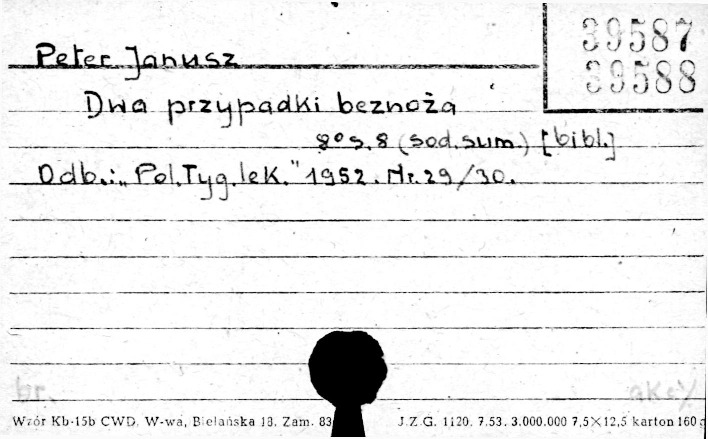 39587
39588
Peter Janusz
Dwa przypadki beznoża
8° s. 8 (sod. sum.) [bibl.]
Odb.: „Pol. Tyg. lek." 1952. Nr. 29/30.
br.
Wzór Kb-15b CWD. W-wa, Bielańska 18. Zam. 83
J.Z.G. 1120. 7.53. 3.000.000 7,5×12,5 karton 160 g